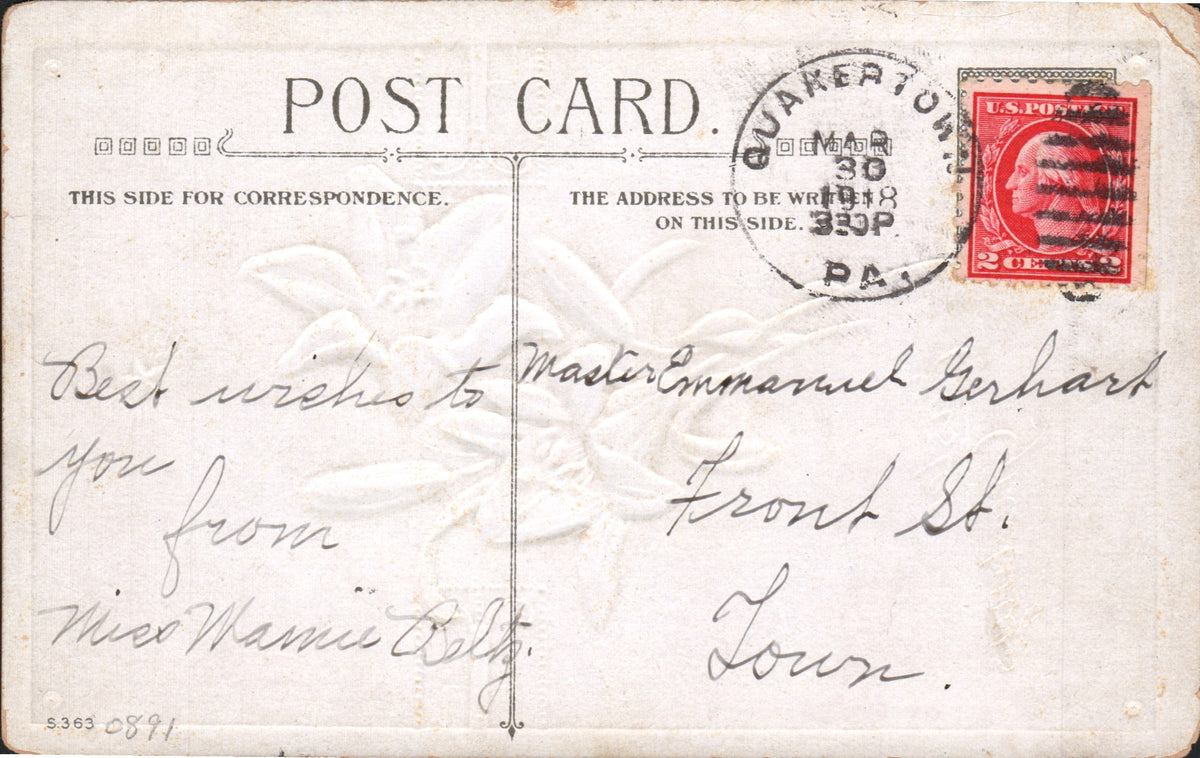 POST CARD.
THIS SIDE FOR CORRESPONDENCE.
THE ADDRESS TO BE WRITTEN
ON THIS SIDE.
QUAKERTOWN
MAR
30
1918
330P
PA.
U.S. POSTAGE
2 CENTS 2
Best wishes to
you
from
Miss Mamie Beltz.
Master Emmanuel Gerhart
Front St.
Town.
S.363 0891